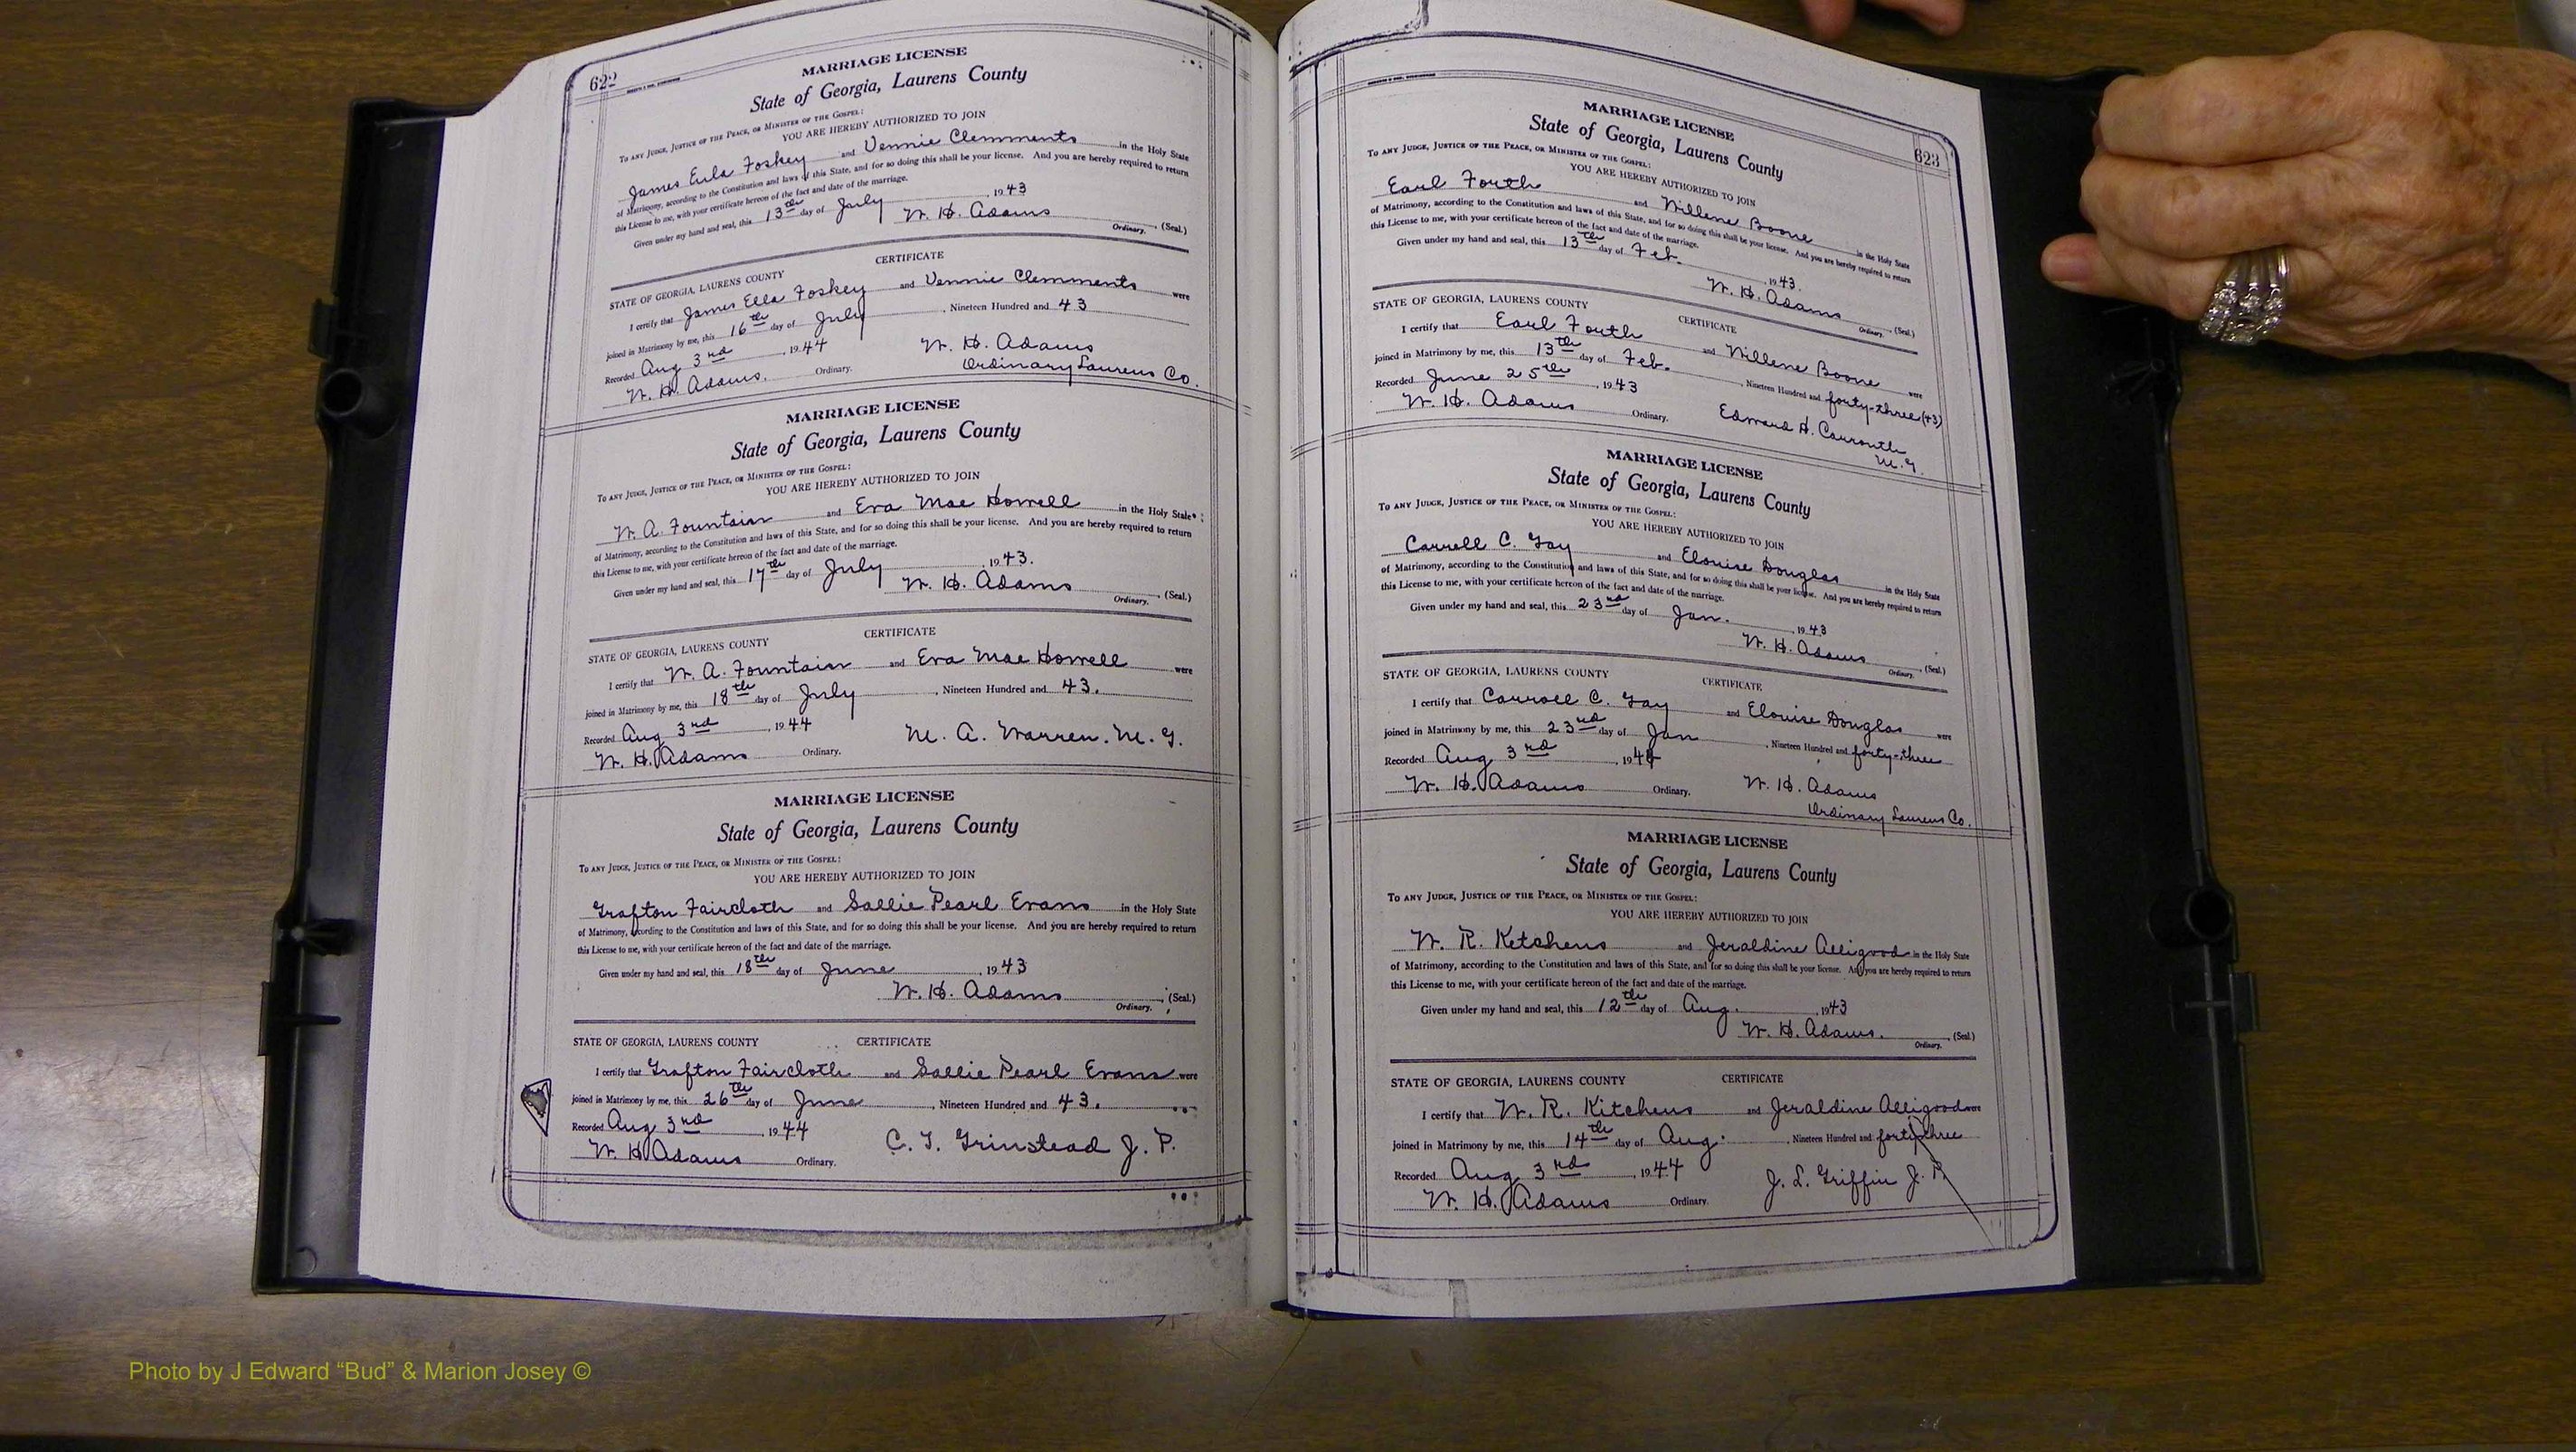 622
MARRIAGE LICENSE
State of Georgia, Laurens County
To any Judge, Justice of the Peace, or Minister of the Gospel:
YOU ARE HEREBY AUTHORIZED TO JOIN
James Eula Foskey and Vennie Clemments in the Holy State
of Matrimony, according to the Constitution and laws of this State, and for so doing this shall be your license. And you are hereby required to return
this License to me, with your certificate hereon of the fact and date of the marriage.
Given under my hand and seal, this 13th day of July 1943
W. H. Adams (Seal.)
Ordinary.
CERTIFICATE
STATE OF GEORGIA, LAURENS COUNTY
I certify that James Ella Foskey and Vennie Clemments were
joined in Matrimony by me, this 16th day of July, Nineteen Hundred and 43
Recorded Aug 3rd, 1944 W. H. Adams
W. H. Adams. Ordinary. Ordinary Laurens Co.
MARRIAGE LICENSE
State of Georgia, Laurens County
To any Judge, Justice of the Peace, or Minister of the Gospel:
YOU ARE HEREBY AUTHORIZED TO JOIN
W. A. Fountain and Eva Mae Howell in the Holy State
of Matrimony, according to the Constitution and laws of this State, and for so doing this shall be your license. And you are hereby required to return
this License to me, with your certificate hereon of the fact and date of the marriage.
Given under my hand and seal, this 17th day of July 1943.
W. H. Adams (Seal.)
Ordinary.
CERTIFICATE
STATE OF GEORGIA, LAURENS COUNTY
I certify that W. A. Fountain and Eva Mae Howell were
joined in Matrimony by me, this 18th day of July, Nineteen Hundred and 43.
Recorded Aug 3rd, 1944 M. A. Warren. M. G.
W. H. Adams Ordinary.
MARRIAGE LICENSE
State of Georgia, Laurens County
To any Judge, Justice of the Peace, or Minister of the Gospel:
YOU ARE HEREBY AUTHORIZED TO JOIN
Grafton Faircloth and Sallie Pearl Evans in the Holy State
of Matrimony, according to the Constitution and laws of this State, and for so doing this shall be your license. And you are hereby required to return
this License to me, with your certificate hereon of the fact and date of the marriage.
Given under my hand and seal, this 18th day of June, 1943
W. H. Adams (Seal.)
Ordinary.
STATE OF GEORGIA, LAURENS COUNTY CERTIFICATE
I certify that Grafton Faircloth and Sallie Pearl Evans were
joined in Matrimony by me, this 26th day of June, Nineteen Hundred and 43.
Recorded Aug 3rd, 1944 C. T. Grinstead J. P.
W. H. Adams Ordinary.
623
MARRIAGE LICENSE
State of Georgia, Laurens County
To any Judge, Justice of the Peace, or Minister of the Gospel:
YOU ARE HEREBY AUTHORIZED TO JOIN
Earl Forth and Willene Boone in the Holy State
of Matrimony, according to the Constitution and laws of this State, and for so doing this shall be your license. And you are hereby required to return
this License to me, with your certificate hereon of the fact and date of the marriage.
Given under my hand and seal, this 13th day of Feb. 1943.
W. H. Adams (Seal.)
Ordinary.
STATE OF GEORGIA, LAURENS COUNTY CERTIFICATE
I certify that Earl Forth and Willene Boone were
joined in Matrimony by me, this 13th day of Feb., Nineteen Hundred and forty-three (43)
Recorded June 25th, 1943
W. H. Adams Ordinary. Edward H. M. G.
MARRIAGE LICENSE
State of Georgia, Laurens County
To any Judge, Justice of the Peace, or Minister of the Gospel:
YOU ARE HEREBY AUTHORIZED TO JOIN
Carroll C. Gay and Elouise Douglas in the Holy State
of Matrimony, according to the Constitution and laws of this State, and for so doing this shall be your license. And you are hereby required to return
this License to me, with your certificate hereon of the fact and date of the marriage.
Given under my hand and seal, this 23rd day of Jan. 1943
W. H. Adams (Seal.)
Ordinary.
STATE OF GEORGIA, LAURENS COUNTY CERTIFICATE
I certify that Carroll C. Gay and Elouise Douglas were
joined in Matrimony by me, this 23rd day of Jan, Nineteen Hundred and forty-three
Recorded Aug 3rd, 1944
W. H. Adams Ordinary. W. H. Adams
Ordinary Laurens Co.
MARRIAGE LICENSE
State of Georgia, Laurens County
To any Judge, Justice of the Peace, or Minister of the Gospel:
YOU ARE HEREBY AUTHORIZED TO JOIN
W. R. Ketchens and Jeraldine Alligood in the Holy State
of Matrimony, according to the Constitution and laws of this State, and for so doing this shall be your license. And you are hereby required to return
this License to me, with your certificate hereon of the fact and date of the marriage.
Given under my hand and seal, this 12th day of Aug. 1943
W. H. Adams. (Seal.)
Ordinary.
STATE OF GEORGIA, LAURENS COUNTY CERTIFICATE
I certify that W. R. Kitchens and Jeraldine Alligood were
joined in Matrimony by me, this 14th day of Aug., Nineteen Hundred and forty-three
Recorded Aug 3rd, 1944 J. L. Griffin J. P.
W. H. Adams Ordinary.
Photo by J Edward “Bud” & Marion Josey ©